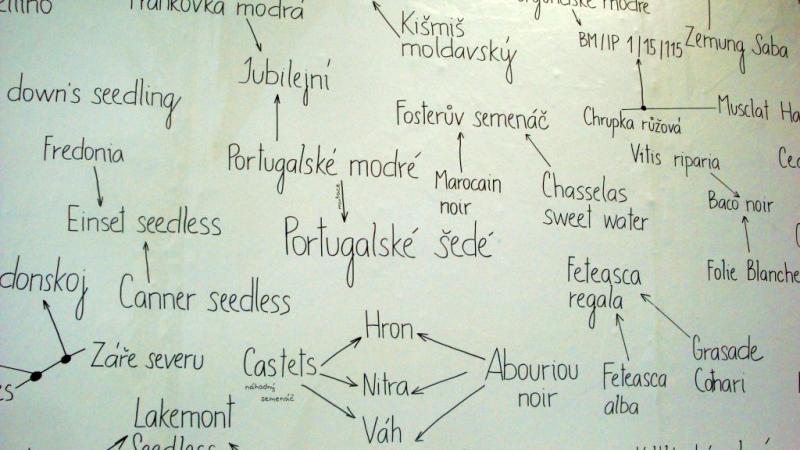 Frankovka modrá
Kišmiš
moldavský
BM/IP 1/15/115
Zemung Saba
Jubilejní
down's seedling
Fosterův semenáč
Chrupka růžová
Musclat
Fredonia
Portugalské modré
Marocain
noir
Chasselas
sweet water
Vitis riparia
Baco noir
mutace
Einset seedless
Portugalské šedé
Folie Blanche
donskoj
Canner seedless
Feteasca
regala
Hron
Záře severu
Castets
náhodný
semenáč
Nitra
Abouriou
noir
Feteasca
alba
Grasade
Cotnari
Váh
Lakemont
Seedless